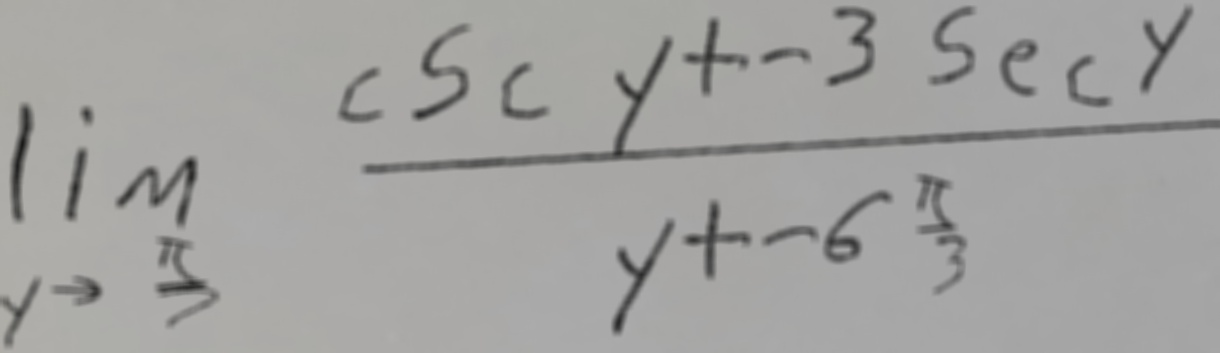 lim y → π/3 (csc y + -3 sec y) / (y + -6 π/3)